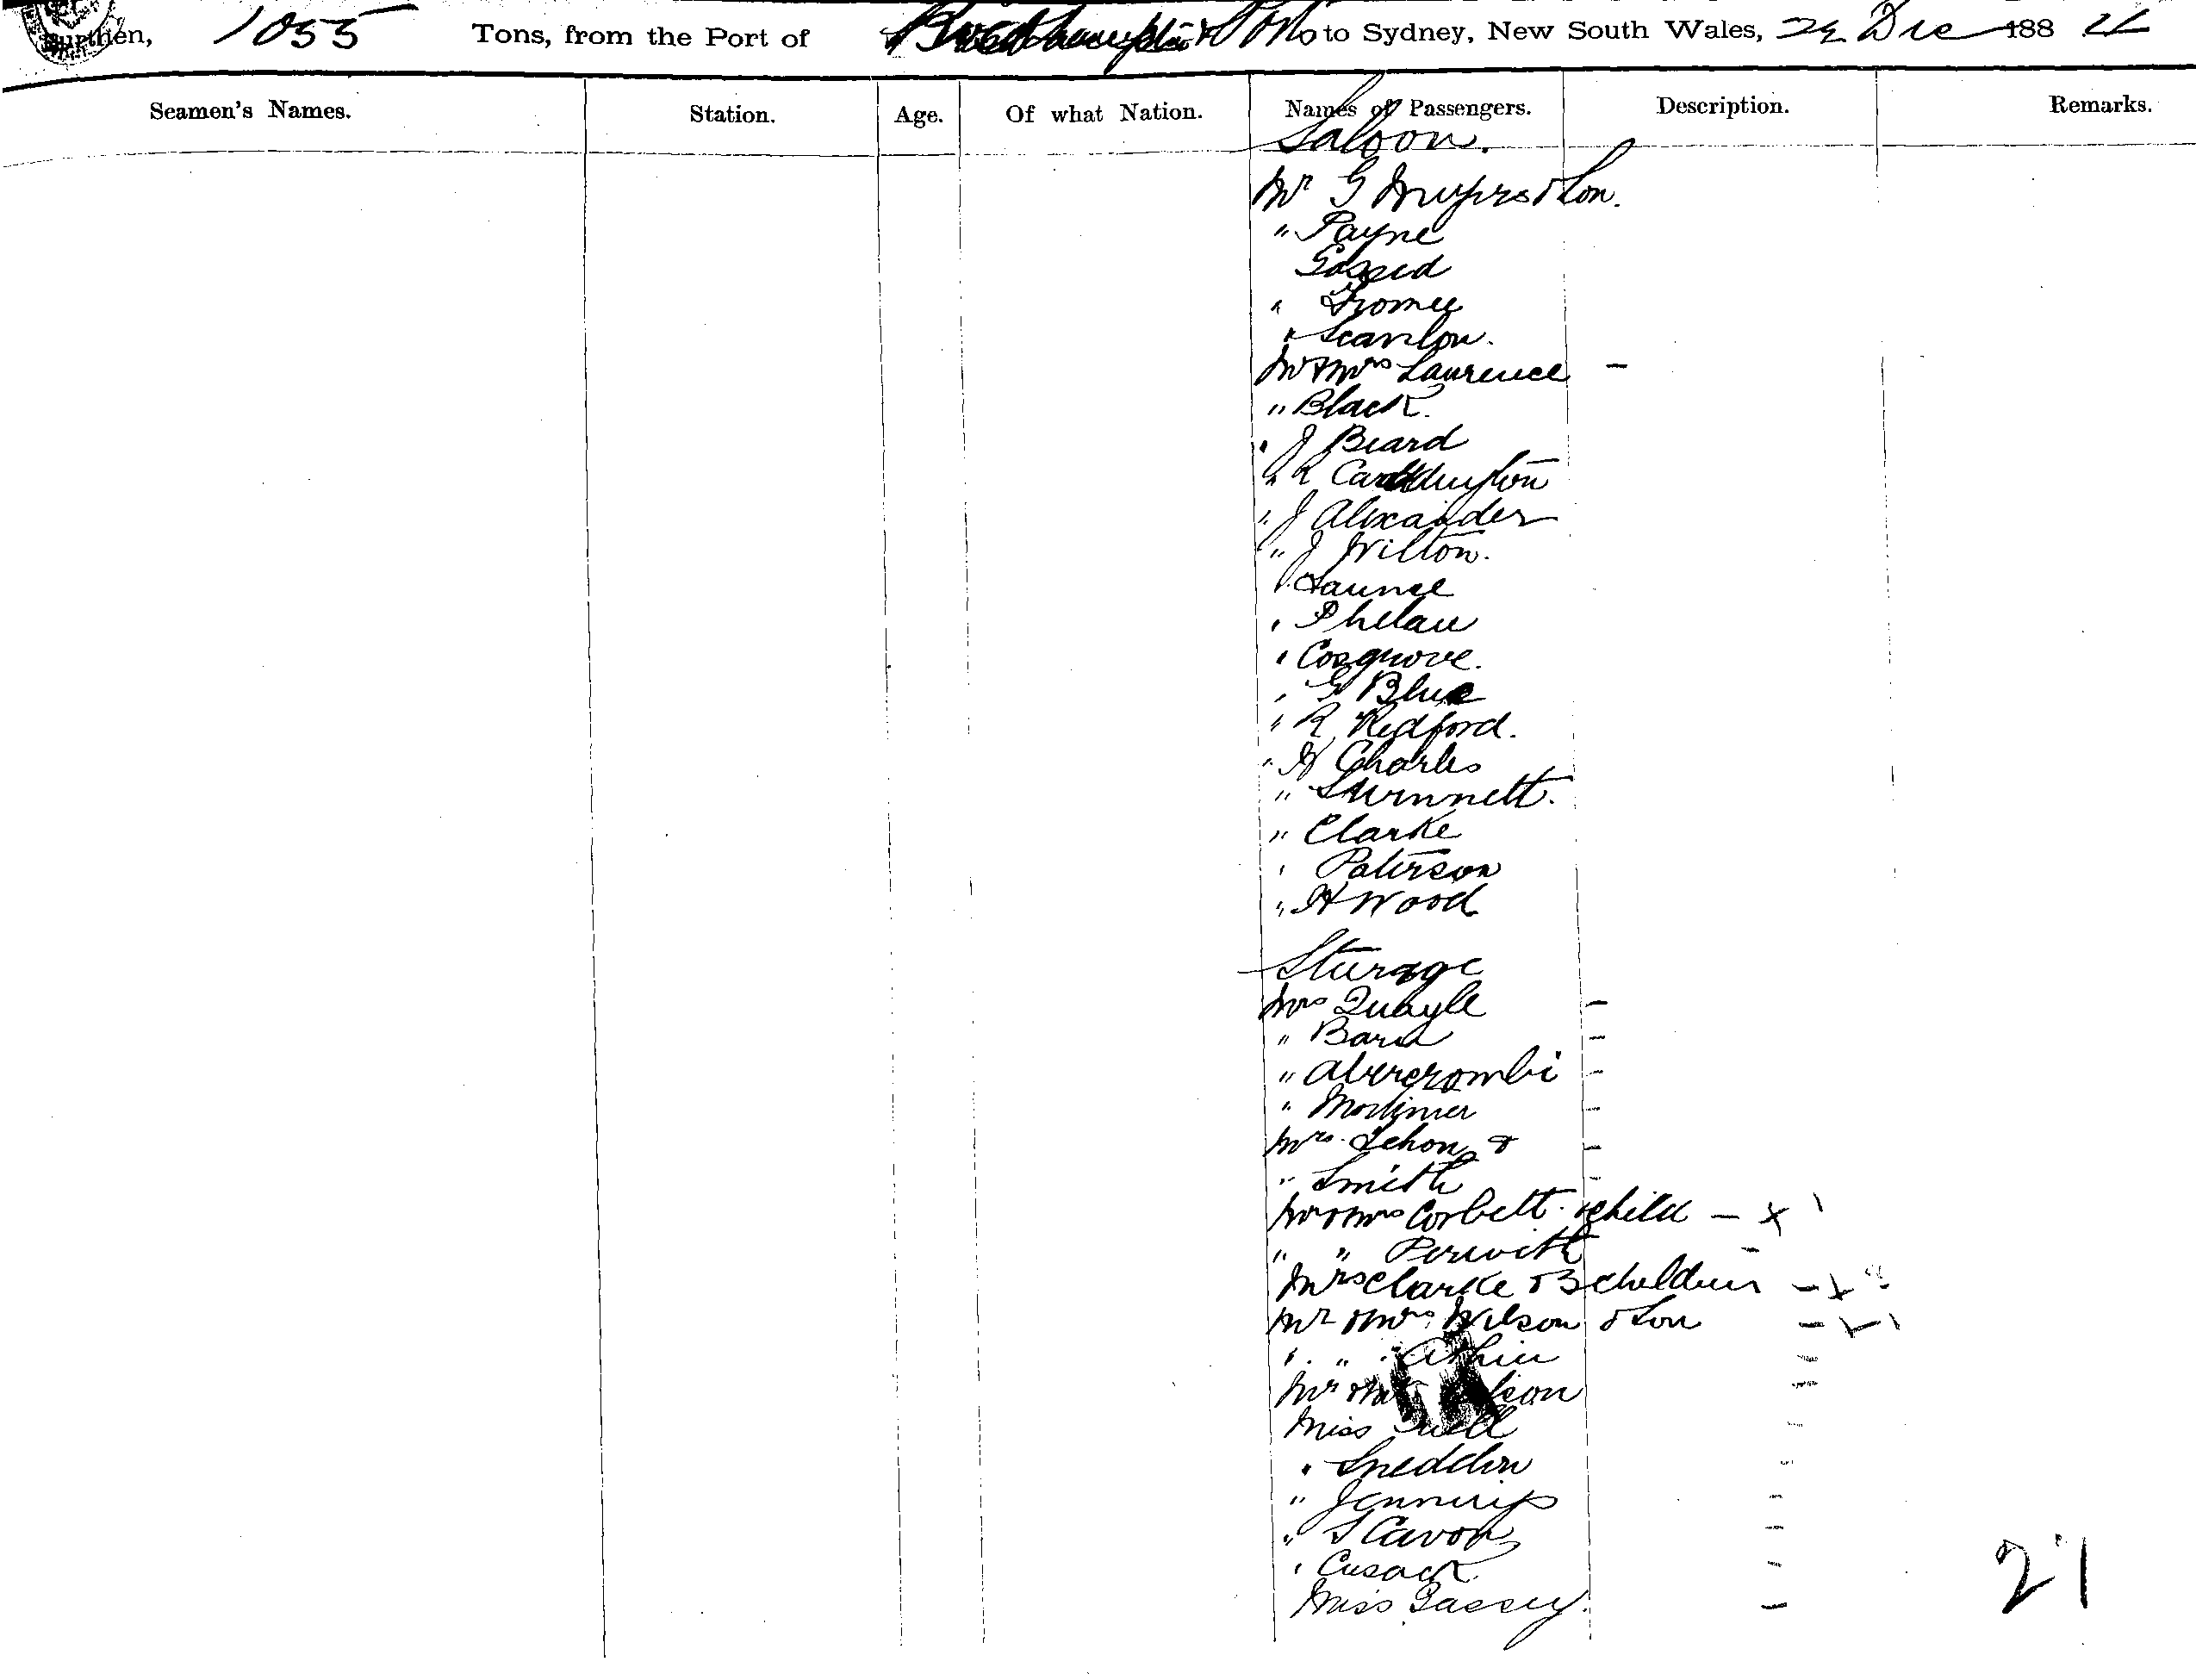 Burthen, 1055 Tons, from the Port of Rockhampton & Ports to Sydney, New South Wales, 24 Dec 188
Seamen's Names. Station. Age. Of what Nation. Names of Passengers. Description. Remarks.
Saloon.
Mr G Myers & Son.
" Payne

" Scanlon.
Mr & Mrs Laurence –
" Black.
" J Beard
" R
" J Alexander
" J Wilton.
" Faunce
" Phelan
" Cosgrove.
" G Blue
" R Redford.
" H Charles
" Swinnett.
" Clarke
" Paterson
" H Wood
Steerage
Mrs Quayle –
" –
" Abercrombi –
" Mortimer –
Mrs Lehon & –
" Smith –
Mr & Mrs Corbett & child – x 1
" " –
Mrs Clarke & 3 children – x 3
Mr & Mrs Wilson & Son – 1
" "
Mr &
Miss
" Sneddon
" Jennings –
" S Cavon –
" Cusack –
Miss –
21